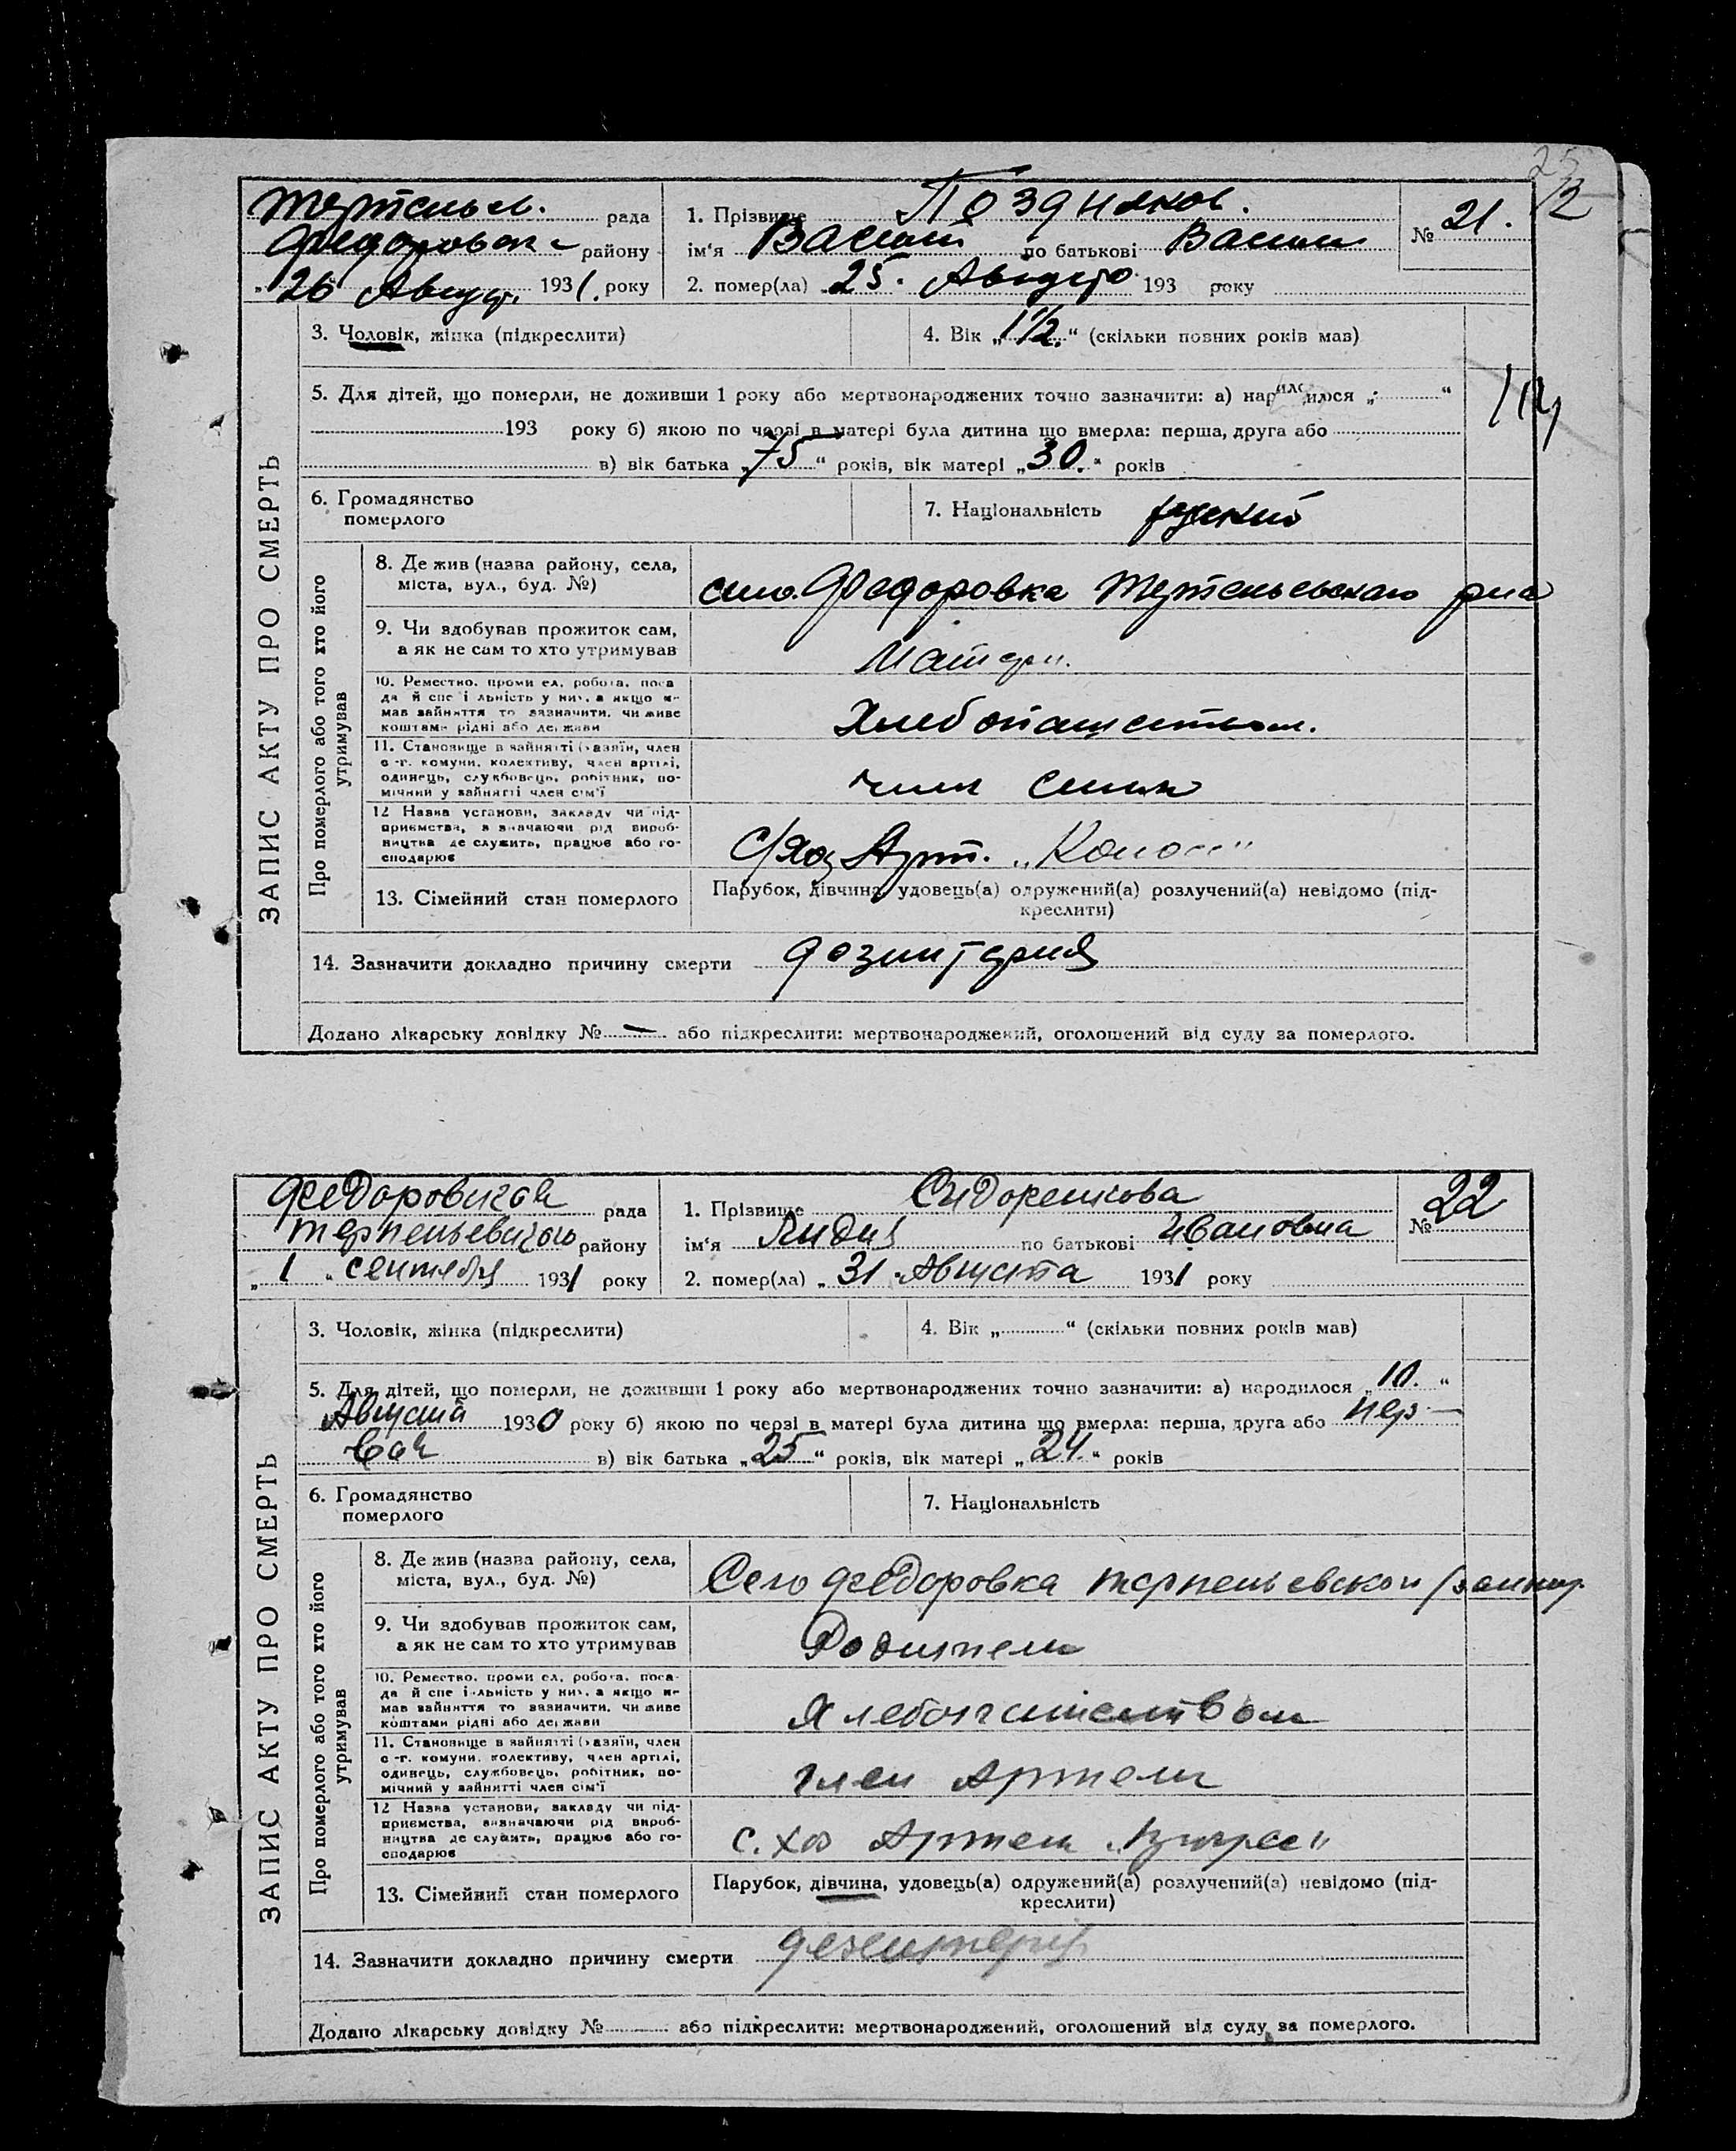 25
12
Терпеньев. рада
Федоровск района
„26 Август. 1931. року
1. Прізвище Поздняков.
ім‘я Васили по батькові Васили
2. помер(ла) 25. Августа 193 року
№ 21.
3. Чоловік, жінка (підкреслити)
4. Вік „1½.“ (скільки повних років мав)
5. Для дітей, що померли, не доживши 1 року або мертвонароджених точно зазначити: а) народилося „ “
193 року б) якою по черзі в матері була дитина що вмерла: перша, друга або
в) вік батька „75“ років, вік матері „30.“ років
6. Громадянство
померлого
7. Національність руский
ЗАПИС АКТУ ПРО СМЕРТЬ
Про померлого або того хто його
утримував
8. Де жив (назва району, села,
міста, вул., буд. №)
село Федоровка Терпеньевского рна
9. Чи здобував прожиток сам,
а як не сам то хто утримував
Матери.
10. Ремество, промисел, робота, поса
да й спеціяльність у них, а якщо не
мав зайняття то зазначити, чи живе
коштами рідні або держави
Хлебопашеством.
11. Становище в зайнятті (хазяїн, член
с-г. комуни, колективу, член артілі,
одинець, службовець, робітник, по-
мічний у зайнятті член сім‘ї
член семьи
12 Назва установи, закладу чи під-
приємства, зазначаючи рід вироб-
ництва де служить, працює або го-
сподарює
С/Хоз Арт. „Колос“
13. Сімейний стан померлого
Парубок, дівчина, удовець(а) одружений(а) розлучений(а) невідомо (під-
креслити)
14. Зазначити докладно причину смерти дезинтерия
Додано лікарську довідку № — або підкреслити: мертвонароджений, оголошений від суду за померлого.
Федоровской рада
Терпеньевского району
„1„ сентября 1931 року
1. Прізвище Сидоренкова
ім‘я Лидия по батькові Ивановна
2. помер(ла) „31 Августа 1931 року
№ 22
3. Чоловік, жінка (підкреслити)
4. Вік „ “ (скільки повних років мав)
5. Для дітей, що померли, не доживши 1 року або мертвонароджених точно зазначити: а) народилося „10.“
Августа 1930 року б) якою по черзі в матері була дитина що вмерла: перша, друга або пер-
вая в) вік батька „25“ років, вік матері „24.“ років
6. Громадянство
померлого
7. Національність
ЗАПИС АКТУ ПРО СМЕРТЬ
Про померлого або того хто його
утримував
8. Де жив (назва району, села,
міста, вул., буд. №)
Село Федоровка Терпеньевского
9. Чи здобував прожиток сам,
а як не сам то хто утримував
Родители
10. Ремество, промисел, робота, поса-
да й спеціяльність у них, а якщо не
мав зайняття то зазначити, чи живе
коштами рідні або держави
Хлебопашеством
11. Становище в зайнятті (хазяїн, член
с-г. комуни, колективу, член артілі,
одинець, службовець, робітник, по-
мічний у зайнятті член сім‘ї
член Артели
12 Назва установи, закладу чи під-
приємства, зазначаючи рід вироб-
ництва де служить, працює або го-
сподарює
С. хоз Артель
13. Сімейний стан померлого
Парубок, дівчина, удовець(а) одружений(а) розлучений(а) невідомо (під-
креслити)
14. Зазначити докладно причину смерти дезентерия
Додано лікарську довідку № або підкреслити: мертвонароджений, оголошений від суду за померлого.